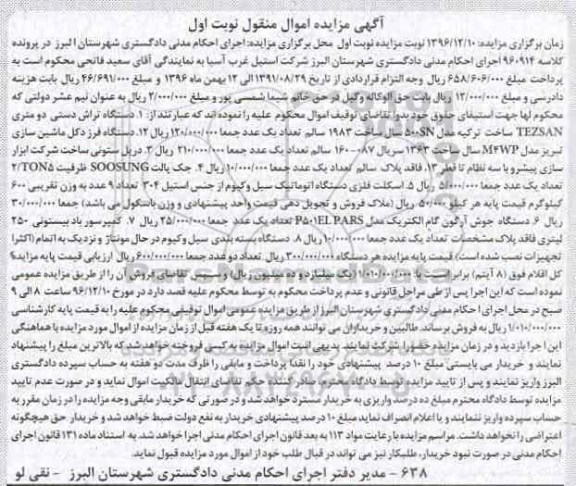 آگهی مزایده اموال منقول نوبت اول
زمان برگزاری مزایده: ۱۳۹۶/۱۲/۱۰ نوبت مزایده نوبت اول محل برگزاری مزایده: اجرای احکام مدنی دادگستری شهرستان البرز در پرونده
کلاسه ۹۶۰۹۱۴ اجرای احکام مدنی دادگستری شهرستان البرز شرکت استیل غرب آسیا به نمایندگی آقای سعید فاتحی محکوم است به
پرداخت مبلغ ۶۵۸/۶۰۶/۰۰۰ ریال وجه التزام قراردادی از تاریخ ۱۳۹۱/۰۸/۲۹ الی ۱۲ بهمن ماه ۱۳۹۶ و مبلغ ۴۶/۶۹۱/۰۰۰ ریال بابت هزینه
دادرسی و مبلغ ۱۲/۰۰۰/۰۰۰ ریال بابت حق الوکاله وکیل در حق خانم شیما شمسی پور و مبلغ ۲/۰۰۰/۰۰۰ ریال به عنوان نیم عشر دولتی که
محکوم لها جهت استیفای حقوق خود بدوا تقاضای توقیف اموال محکوم علیه را نموده اند که عبارتند از: ۱. دستگاه تراش دستی دو متری
TEZSAN ساخت ترکیه مدل ۵۰۰SN ساخت ۱۹۸۳ سالم تعداد یک عدد جمعا ۱۲۰/۰۰۰/۰۰۰ ریال ۲. دستگاه فرز دکل ماشین سازی
تبریز مدل M۴WP سال ساخت ۱۳۶۳ سریال ۰۸۷-۱۶۰ سالم تعداد یک عدد جمعا ۲۱۰/۰۰۰/۰۰۰ ریال ۳. دریل ستونی ساخت شرکت ابزار
سازی پیشرو با سه نظام تا قطر ۱۳، فاقد پلاک سالم تعداد یک عدد جمعا ۱۰/۰۰۰/۰۰۰ ریال ۴. جک پالت SOOSUNG ظرفیت ۲/TON۵
تعداد یک عدد جمعا ۵/۰۰۰/۰۰۰ ریال ۵. اسکلت فلزی دستگاه اتوماتیک سیل وکیوم از جنس استیل ۳۰۴ تعداد ۹ عدد به وزن تقریبی ۶۰۰
کیلوگرم قیمت پایه هر کیلو ۵۰/۰۰۰ ریال (ملاک فروش و تحویل دهی قیمت واحد پیشنهادی و وزن باسکول می باشد) جمعا ۳۰/۰۰۰/۰۰۰
ریال ۶. دستگاه جوش آرگون گام الکتریک مدل P۵۰۱EL PARS تعداد یک عدد جمعا ۲۵/۰۰۰/۰۰۰ ریال ۷. کمپرسور باد پیستونی ۲۵۰
لیتری فاقد پلاک مشخصات تعداد یک عدد جمعا ۱۰/۰۰۰/۰۰۰ ریال ۸. دستگاه بسته بندی سیل وکیوم در حال مونتاژ و نزدیک به اتمام (اکثرا
تجهیزات نصب شده است) قیمت پایه مزایده هر دستگاه ۳۰۰/۰۰۰/۰۰۰ ریال تعداد دو عدد جمعا ۶۰۰/۰۰۰/۰۰۰ ریال ارزیابی قیمت پایه مزایده
کل اقلام فوق (۸ آیتم) برابر است با ۱/۰۱۰/۰۰۰/۰۰۰ (یک میلیارد و ده میلیون ریال) و سپس تقاضای فروش آن را از طریق مزایده عمومی
نموده است که این اجرا پس از طی مراحل قانونی و عدم پرداخت محکوم به توسط محکوم علیه قصد دارد در مورخ ۹۶/۱۲/۱۰ ساعت ۸ الی ۹
صبح در محل اجرای احکام مدنی دادگستری شهرستان البرز از طریق مزایده عمومی اموال توقیفی محکوم علیه را به قیمت پایه کارشناسی
۱/۰۱۰/۰۰۰/۰۰۰ ریال به فروش برساند. طالبین و خریداران می توانند همه روزه تا یک هفته قبل از زمان مزایده از اموال مورد مزایده با هماهنگی
این اجرا بازدید و در زمان مزایده حضورا شرکت نمایند. بدیهی است اموال مزایده به کسی فروخته خواهد شد که بالاترین مبلغ را پیشنهاد
نمایند و خریدار می بایستی مبلغ ۱۰ درصد پیشنهادی خود را نقدا پرداخت و مابقی را ظرف مدت دو هفته به حساب سپرده دادگستری
البرز واریز نمایند و پس از تایید مزایده توسط دادگاه محترم صادر کننده حکم تقاضای انتقال مالکیت اموال نماید و در صورت عدم تایید
مزایده توسط دادگاه محترم مبلغ ده درصد واریزی به خریدار مسترد خواهد شد و در صورتی که خریدار مابقی وجه مزایده را در زمان مقرر به
حساب سپرده واریز ننمایند و یا اعلام انصراف نماید مبلغ ۱۰ درصد پیشنهادی خریدار به نفع دولت ضبط خواهد شد و خریدار حق هیچگونه
اعتراضی را نخواهد داشت. مراسم مزایده با رعایت مواد ۱۱۳ به بعد قانون اجرای احکام مدنی اجرا خواهد شد. به استناد ماده ۱۳۱ قانون اجرای
احکام مدنی در صورت نبود خریدار، طلبکار نیز می تواند در قبال طلب خود از اموال مورد مزایده قبول نماید.
۶۳۸ – مدیر دفتر اجرای احکام مدنی دادگستری شهرستان البرز – نقی لو